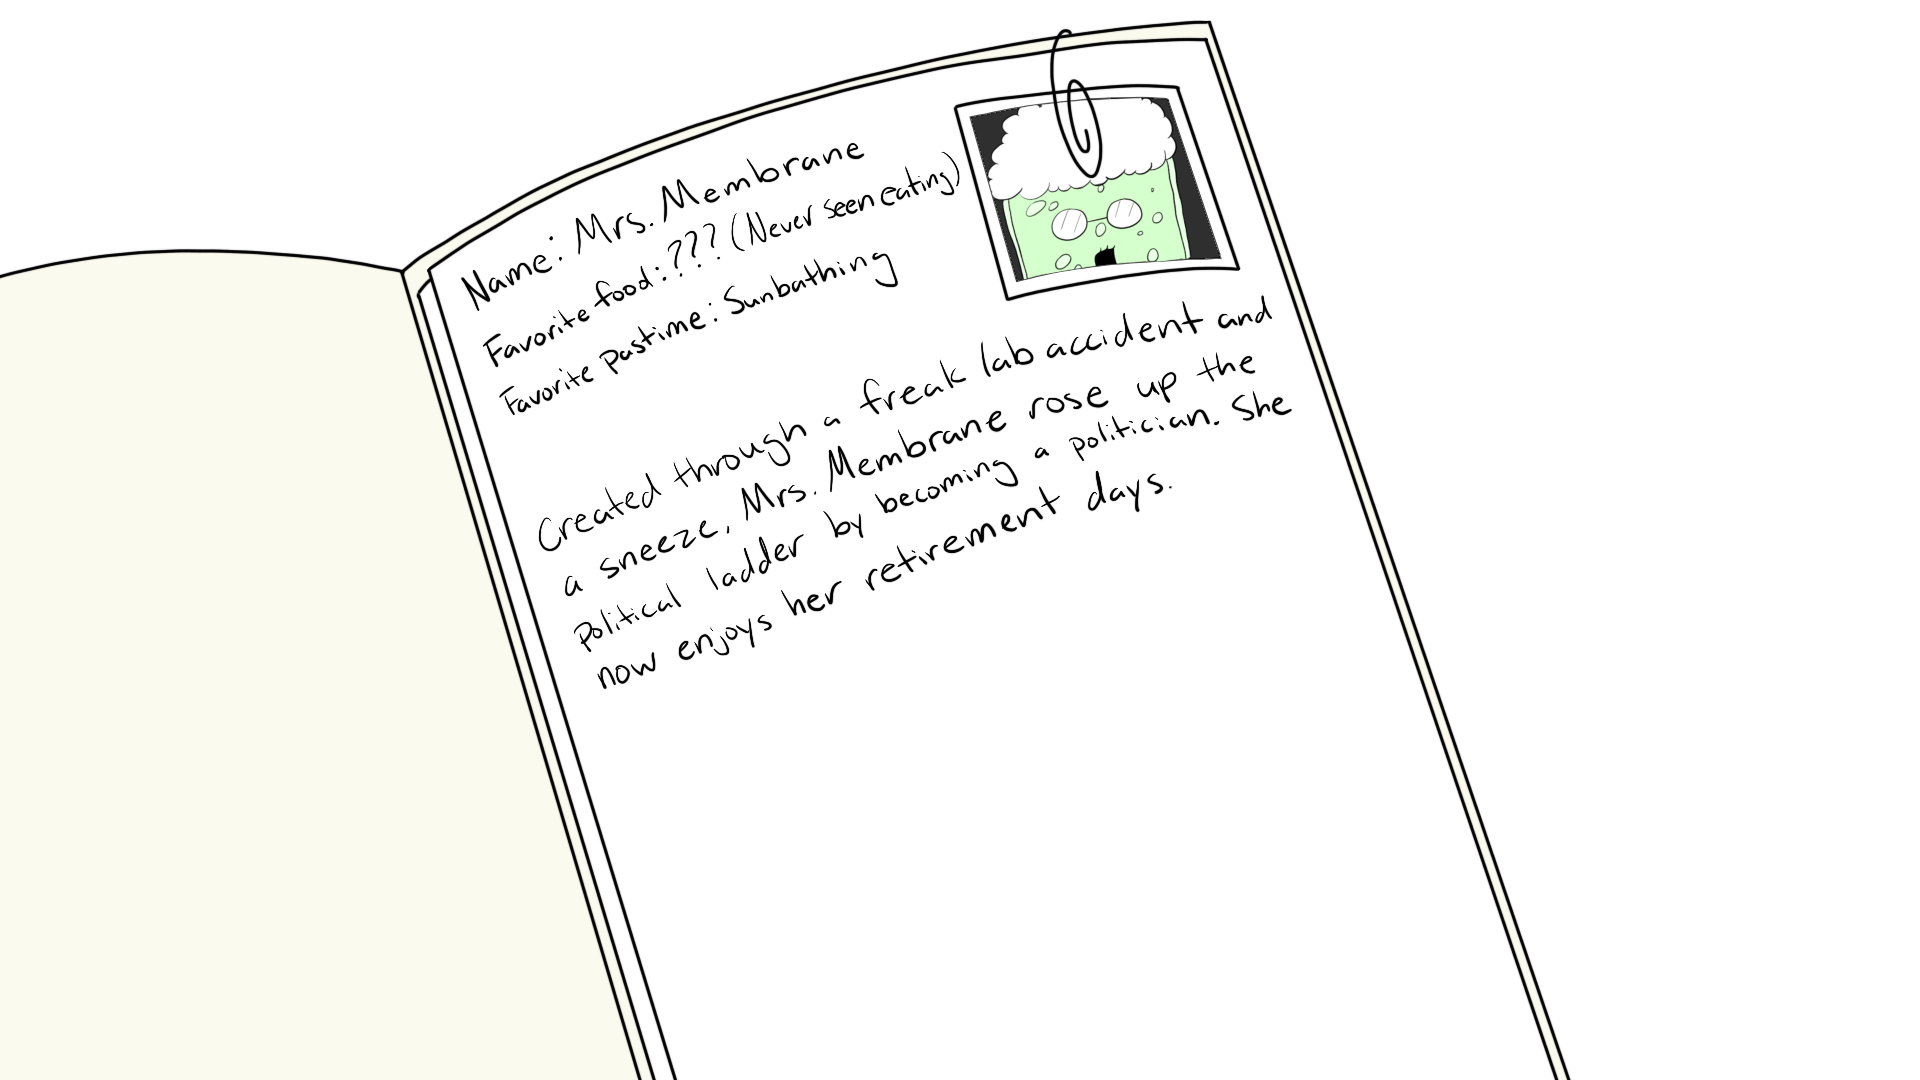 Name: Mrs. Membrane
Favorite food: ??? (Never seen eating)
Favorite pastime: Sunbathing
Created through a freak lab accident and
a sneeze, Mrs. Membrane rose up the
political ladder by becoming a politician. She
now enjoys her retirement days.